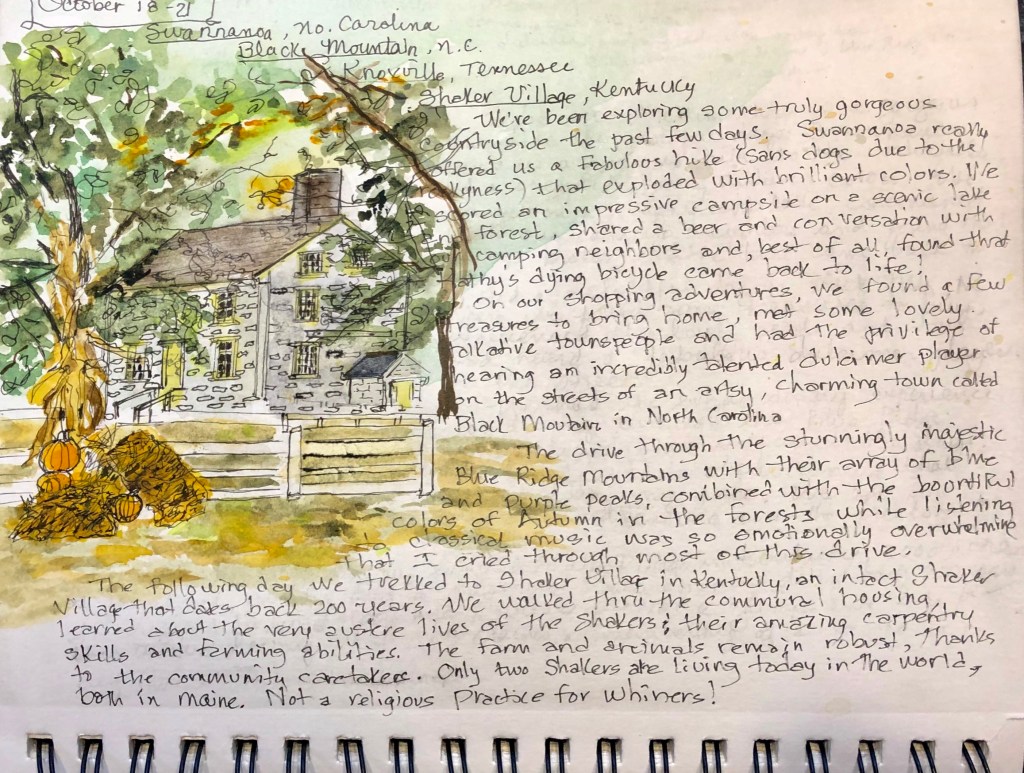 October 18-21
Swannanoa, No. Carolina
Black Mountain, N.C.
Knoxville, Tennessee
Shaker Village, Kentucky
We've been exploring some truly gorgeous
countryside the past few days. Swannanoa really
offered us a fabulous hike (sans dogs due to the
) that exploded with brilliant colors. We
an impressive campsite on a scenic lake
forest, shared a beer and conversation with
camping neighbors and, best of all, found that
Kathy's dying bicycle came back to life!
On our shopping adventures, we found a few
treasures to bring home, met some lovely
talkative townspeople and had the privilege of
hearing an incredibly talented dulcimer player
on the streets of an artsy, charming town called
Black Moutain in North Carolina
The drive through the stunningly majestic
Blue Ridge Mountains with their array of blue
and purple peaks, combined with the bountiful
colors of Autumn in the forests while listening
to classical music was so emotionally overwhelming
that I cried through most of this drive.
The following day we trekked to Shaker Village in Kentucky, an intact Shaker
Village that dates back 200 years. We walked thru the communal housing,
learned about the very austere lives of the Shakers; their amazing carpentry
skills and farming abilities. The farm and animals remain robust, thanks
to the community caretakers. Only two Shakers are living today in the world,
both in Maine. Not a religious Practice for whiners!